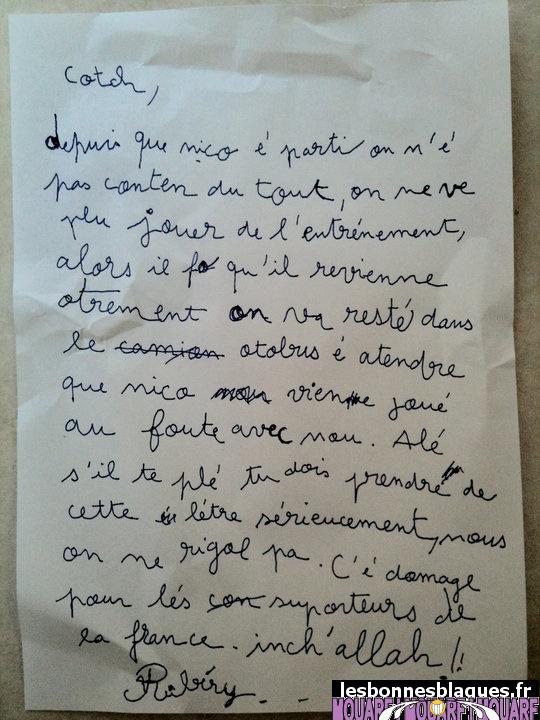 cotch,
depuis que nico é parti on n'é
pas conten du tout, on ne ve
plu jouer de l'entrénement,
alors il fo qu'il revienne
otrement on va resté dans
le camion otobus é atendre
que nico vienne joué
au foute avec nou. Alé
s'il te plé tu dois prendre de
cette létre sérieucement, nous
on ne rigol pa. C'é domage
pour lés con suporteurs de
la france. inch'allah !!
Ribéry - -
lesbonnesblagues.fr